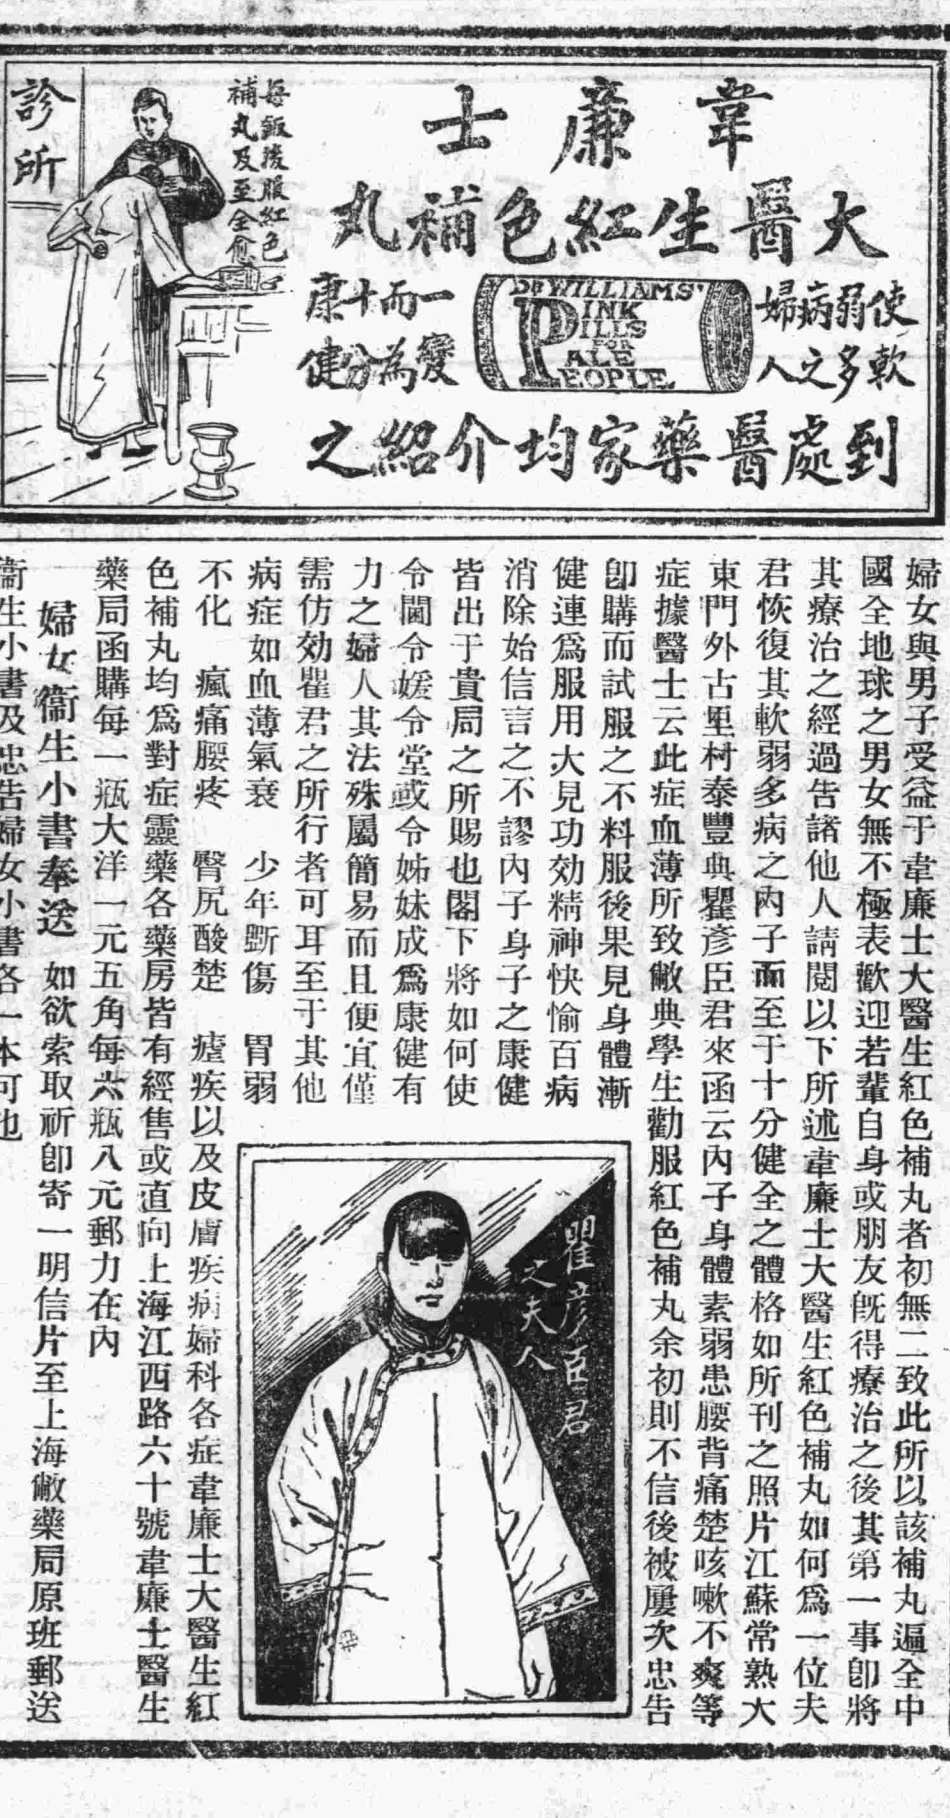 韋廉士
大醫生紅色補丸
使軟弱多病之婦人
DR WILLIAMS'
PINK
PILLS
FOR
PALE
PEOPLE
一變而為十分康健
到處醫藥家均介紹之
每飯後服紅色
補丸及至全愈
診所
婦女與男子受益于韋廉士大醫生紅色補丸者初無二致此所以該補丸遍全中
國全地球之男女無不極表歡迎若輩自身或朋友既得療治之後其第一事卽將
其療治之經過告諸他人請閱以下所述韋廉士大醫生紅色補丸如何爲一位夫
君恢復其軟弱多病之內子而至于十分健全之體格如所刊之照片江蘇常熟大
東門外古里村泰豐典瞿彥臣君來函云內子身體素弱患腰背痛楚咳嗽不爽等
症據醫士云此症血薄所致敝典學生勸服紅色補丸余初則不信後被屢次忠告
卽購而試服之不料服後果見身體漸
健連爲服用大見功効精神快愉百病
消除始信言之不謬內子身子之康健
皆出于貴局之所賜也閣下將如何使
令閫令媛令堂或令姊妹成爲康健有
力之婦人其法殊屬簡易而且便宜僅
需仿効瞿君之所行者可耳至于其他
病症如血薄氣衰 少年斲傷 胃弱
不化 瘋痛腰疼 臀尻酸楚 瘧疾以及皮膚疾病婦科各症韋廉士大醫生紅
色補丸均爲對症靈藥各藥房皆有經售或直向上海江西路六十號韋廉士醫生
藥局函購每一瓶大洋一元五角每六瓶八元郵力在內
婦女衞生小書奉送 如欲索取祈卽寄一明信片至上海敝藥局原班郵送
衞生小書及忠告婦女小書各一本可也
瞿彥臣君
之夫人